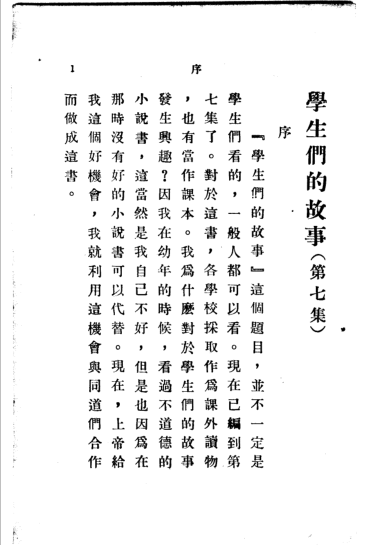 序
1
學生們的故事(第七集)
序
『學生們的故事』這個題目,並不一定是
學生們看的,一般人都可以看。現在已編到第
七集了。對於這書,各學校採取作爲課外讀物
,也有當作課本。我爲什麼對於學生們的故事
發生興趣?因我在幼年的時候,看過不道德的
小說書,這當然是我自己不好,但是也因爲在
那時沒有好的小說書可以代替。現在,上帝給
我這個好機會,我就利用這機會與同道們合作
而做成這書。